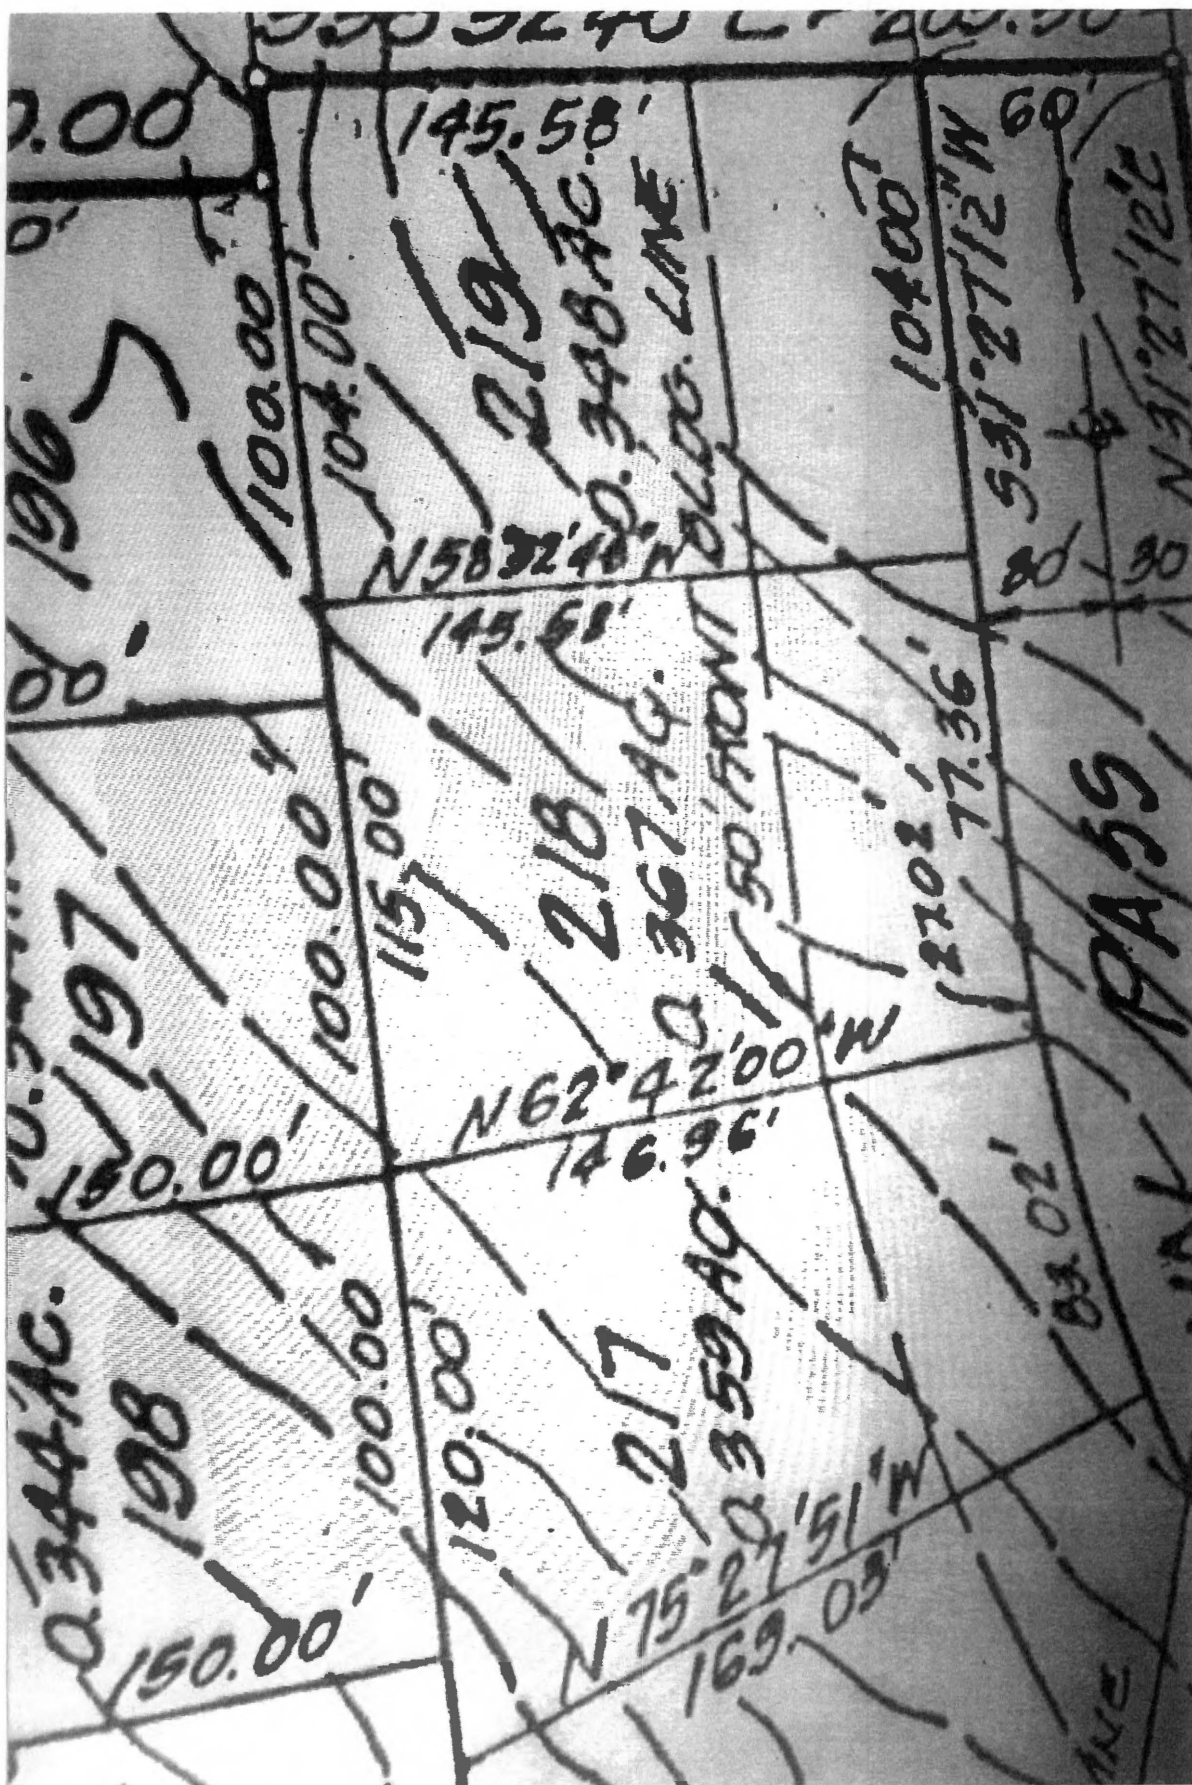 145.58'
60'
196
100.00
104.00'
219
0.348 AC.
BLDG. LINE
104.00'
S31°27'12"W
N31°27'12"E
N58°32'40"W
145.58'
30'
30
197
100.00'
115.00'
218
0.367 AC.
50' FRONT
27.02'
77.36'
PASS
150.00'
N62°42'00"W
146.96'
0.344 AC.
198
100.00
120.00'
217
0.359 AC.
83.02'
150.00'
N75°27'51"W
169.03'